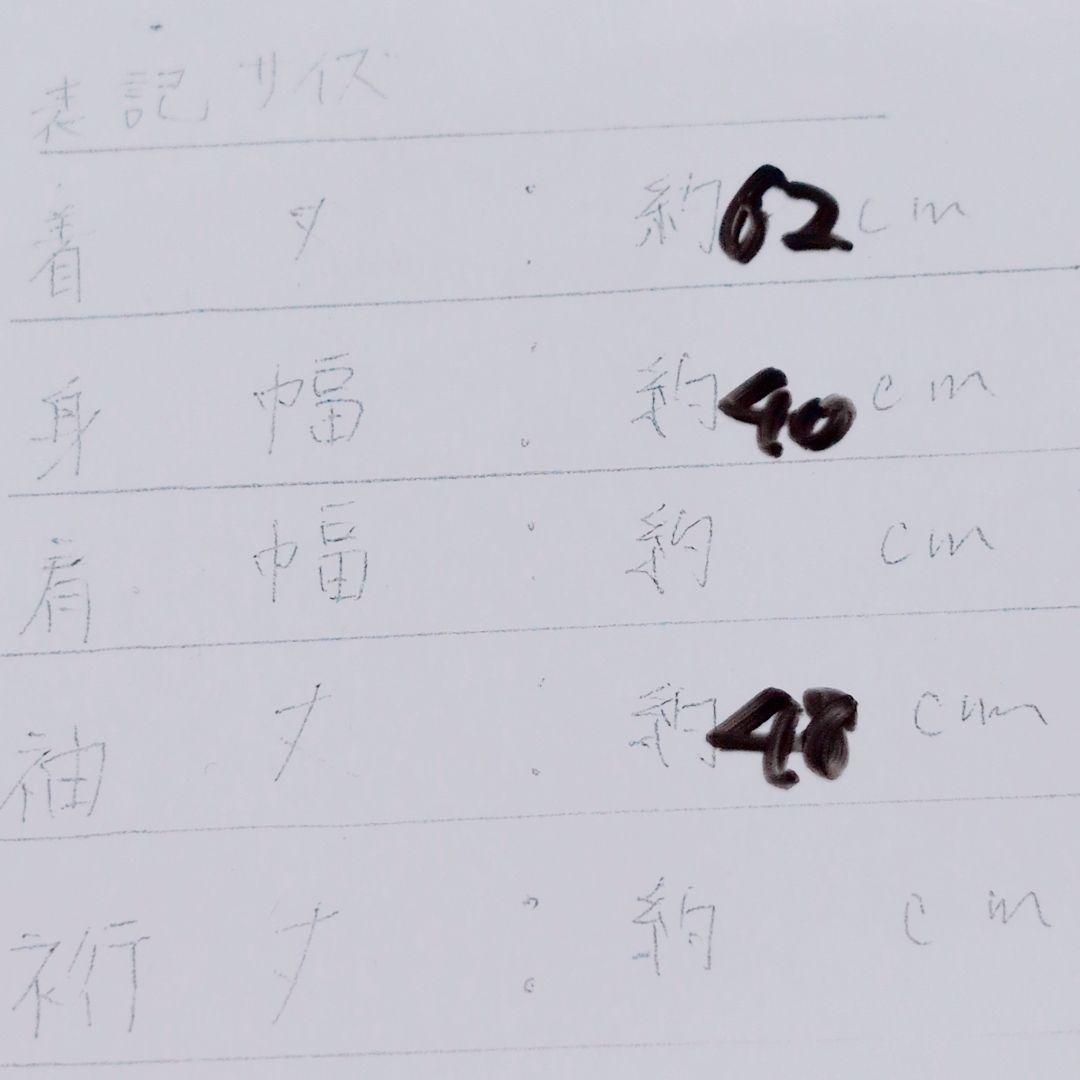 表記サイズ
着 丈 : 約62cm
身 幅 : 約40cm
肩 幅 : 約 cm
袖 丈 : 約48cm
裄 丈 : 約 cm